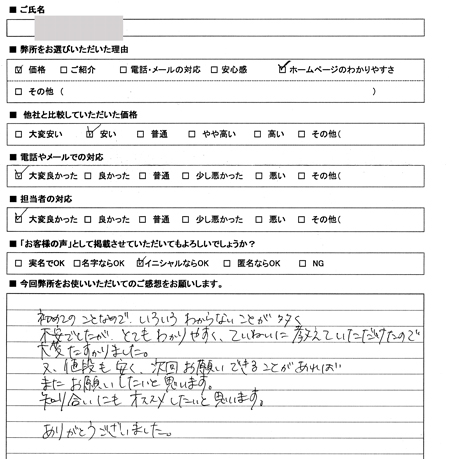 ■ ご氏名
■ 弊所をお選びいただいた理由
☑ 価格 □ ご紹介 □ 電話・メールの対応 □ 安心感 ☑ ホームページのわかりやすさ
□ その他 ( )
■ 他社と比較していただいた価格
□ 大変安い ☑ 安い □ 普通 □ やや高い □ 高い □ その他(
■ 電話やメールでの対応
☑ 大変良かった □ 良かった □ 普通 □ 少し悪かった □ 悪い □ その他(
■ 担当者の対応
☑ 大変良かった □ 良かった □ 普通 □ 少し悪かった □ 悪い □ その他(
■ 「お客様の声」として掲載させていただいてもよろしいでしょうか？
□ 実名でOK □ 名字ならOK ☑ イニシャルならOK □ 匿名ならOK □ NG
■ 今回弊所をお使いいただいてのご感想をお願いします。
初めてのことなので、いろいろわからないことが多く
不安でしたが、とてもわかりやすく、ていねいに教えていただけたので
大変たすかりました。
又、値段も安く、次回お願いできることがあれば
またお願いしたいと思います。
知り合いにもオススメしたいと思います。
ありがとうございました。